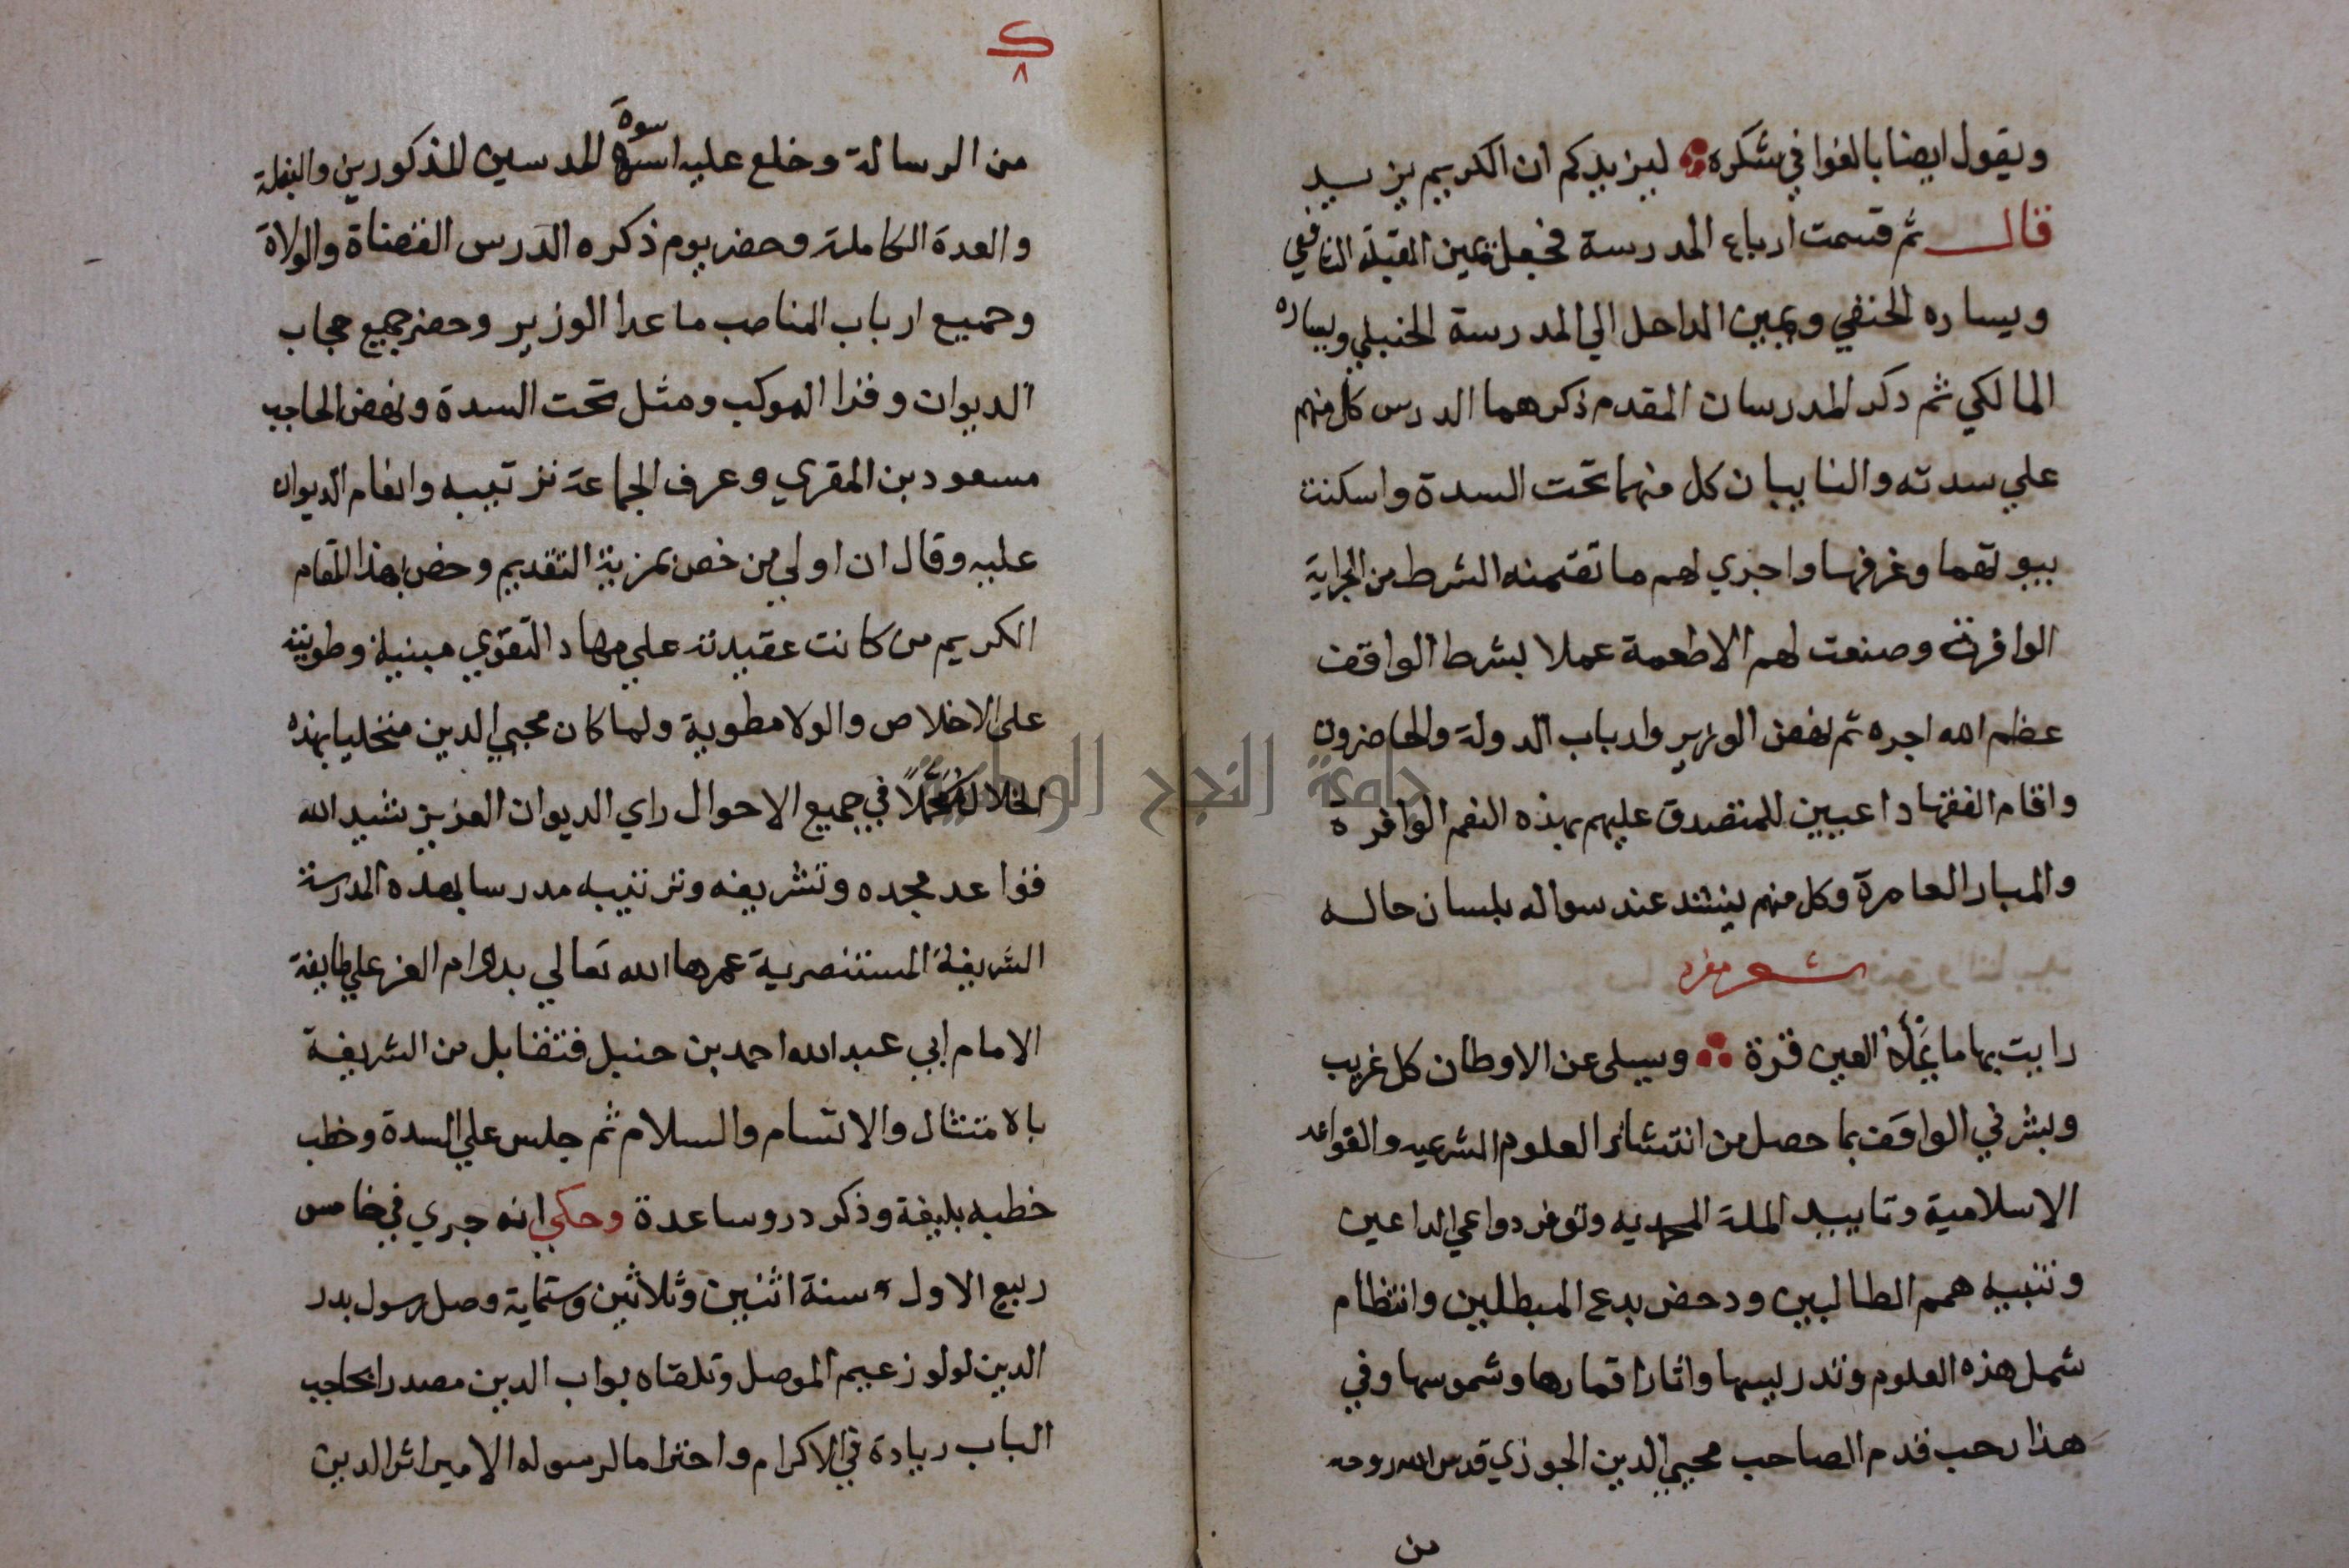 ويقول ايضا بالغوا في شكره ليزيدكم ان الكريم يزيد
قال ثم قسمت ارباع المدرسة فجعل يمين القبلة الشافعي
ويساره الحنفي ويمين الداخل الي المدرسة الحنبلي ويساره
المالكي ثم ذكر المدرسان المقدم ذكرهما الدرس كل منهم
علي سدته والنايبان كل منهما تحت السدة واسكنت
بيوتهما وغرفها واجري لهم ما تضمنه الشرط من الجراية
الوافرة وصنعت لهم الاطعمة عملا بشرط الواقف
عظم الله اجره ثم نهض الوزير وارباب الدولة والحاضرون
واقام الفقها داعيين للمتصدق عليهم بهذه النعم الوافرة
والمبار العامرة وكل منهم ينشد عند سواله بلسان حاله
شعر مفرد
رايت بها ما يملأ العين قرة ويسلى عن الاوطان كل غريب
وبشر في الواقف بما حصل من انتشار العلوم الشرعيه والقواعد
الاسلامية وتاييد الملة المحمديه وتوفر دواعي الداعين
وتنبيه همم الطالبين ودحض بدع المبطلين وانتظام
شمل هذه العلوم وتدريسها واثارا قمارها وشموسها وفي
هذا رحب قدم الصاحب محيي الدين الجوزي قدس الله روحه
من
ک
٨
من الرسالة وخلع عليه اسوة المدسين المذكورين والبغلة
والعدة الكاملة وحضر يوم ذكره الدرس القضاة والولاة
وجميع ارباب المناصب ما عدا الوزير وحضر جميع حجاب
الديوان وقرا الموكب ومثل تحت السدة ونهض الحاجب
مسعود بن المقري وعرف الجماعة ترتيبه وانعام الديوان
عليه وقال ان اولي من خص بمزية التقديم وحض بهذا المقام
الكريم من كانت عقيدته علي مهاد التقوي مبنية وطويته
على الاخلاص والولا مطوية ولما كان محيي الدين متخليا بهذه
الخلال في جميع الاحوال راي الديوان العزيز شيد الله
قواعد مجده وتشريفه وترتيبه مدرسا بهذه المدرسة
الشريفة المستنصرية عمرها الله تعالي بدوام العز علي طايفة
الامام ابي عبد الله احمد بن حنبل فتقابل من الشريفة
بالامتثال والاتسام والسلام ثم جلس علي السدة وخطب
خطبه بليغة وذكر دروسا عدة وحكي انه جري في خامس
ربيع الاول سنة اثنين وثلاثين وستماية وصل رسول بدر
الدين لولو زعيم الموصل وتلقاه بواب الدين مصدر الحاجب
الباب زيادة في الاكرام واحتراما لرسوله الامير اثر الدين
جامعة النجاح الوطنية